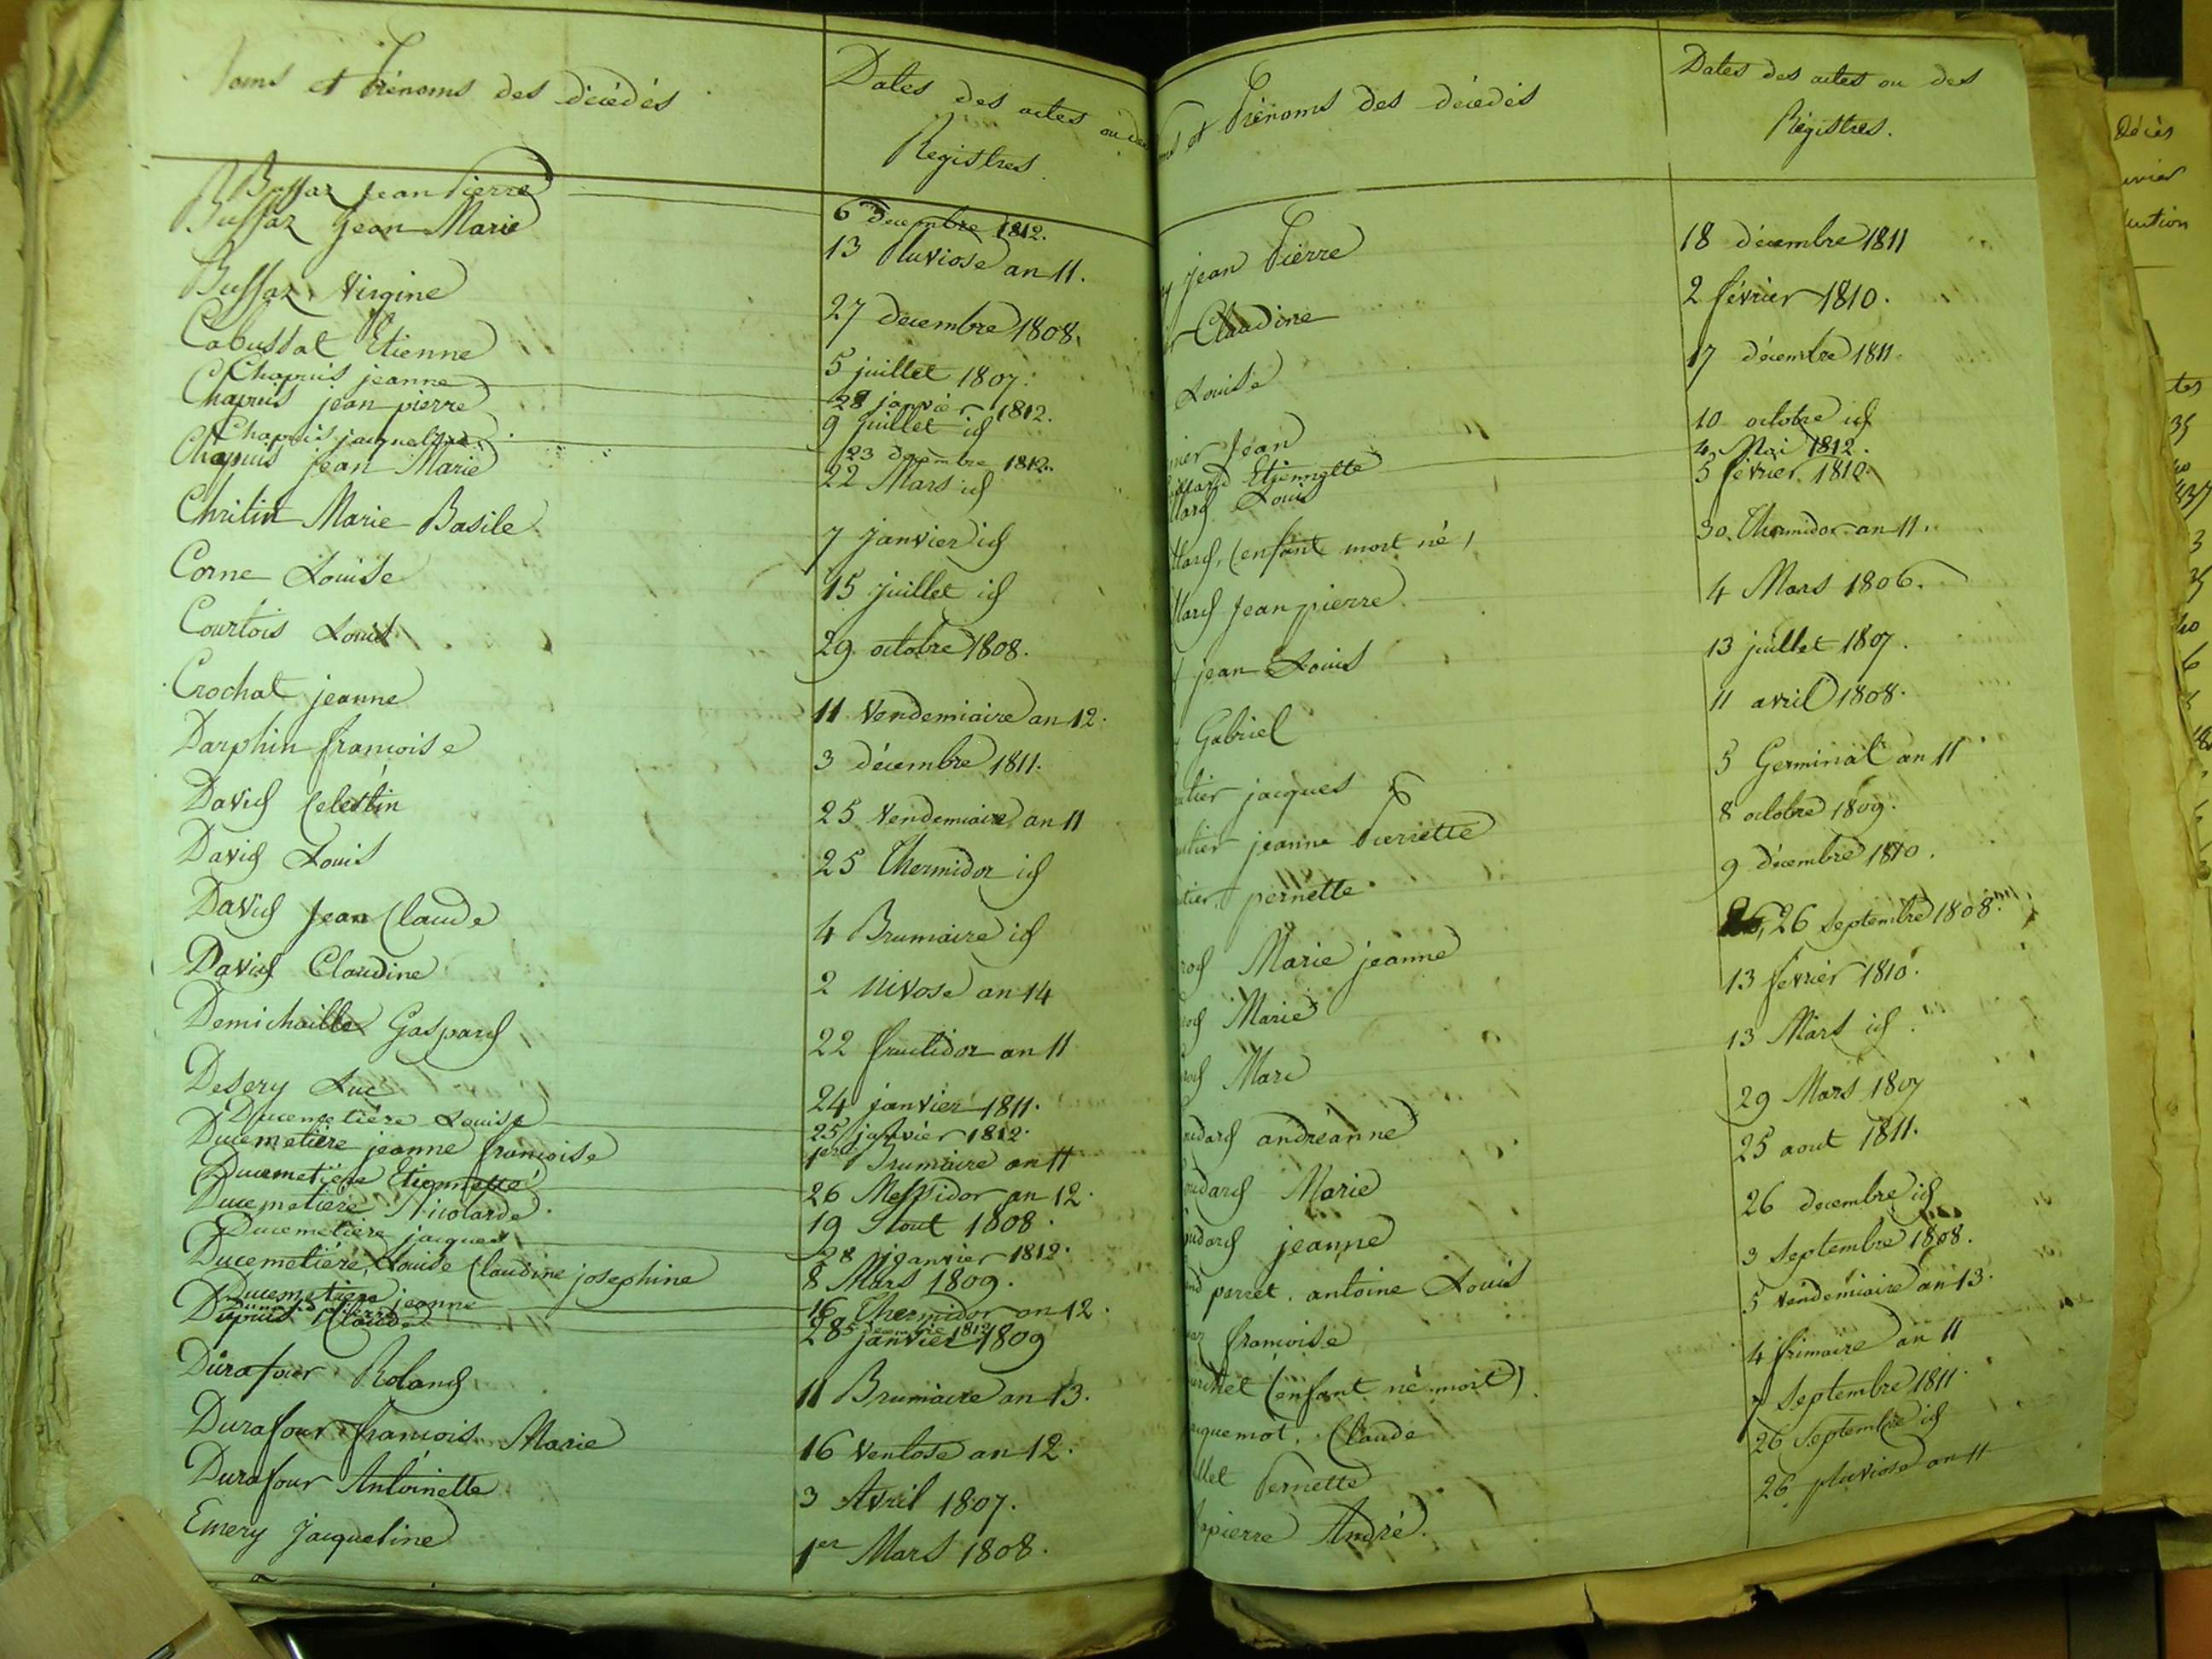 Noms et Prénoms des décédés
Dates des actes ou des
Registres.
Buffaz Jean Pierre 6 Decembre 1812.
Buffaz Jean Marie 13 Pluviose an 11.
Buffaz Virgine 27 decembre 1808.
Cabussat Etienne 5 juillet 1807.
Chapuis jeanne 28 janvier 1812.
Chapuis jean pierre 9 juillet id
Chapuis jacqueline 23 decembre 1812.
Chapuis Jean Marie 22 Mars id
Chritin Marie Basile 7 janvier id
Corne Louise 15 juillet id
Courtois Louis 29 octobre 1808.
Crochat jeanne 11 Vendemiaire an 12.
Darphin francoise 3 décembre 1811.
David Celestin 25 Vendemiaire an 11
David Louis 25 Thermidor id
David Jean Claude 4 Brumaire id
David Claudine 2 Nivose an 14
Demichaille Gaspard 22 fructidor an 11
Desery Luc 24 janvier 1811.
Ducemetière Louise 25 janvier 1812.
Ducemetière jeanne francoise 1er Brumaire an 11
Ducemetière Etiennette 26 Messidor an 12.
Ducemetière Nicolarde 19 Aout 1808.
Ducemetière jacques 28 janvier 1812.
Ducemetière, Louise Claudine josephine 8 Mars 1809.
Ducemetière jeanne 16 Thermidor an 12.
Dunand pierre 5 decembre 1812
Dupuis Claude 28 janvier 1809
Durafour Roland 11 Brumaire an 13.
Durafour francois Marie 16 Ventose an 12.
Durafour Antoinette 3 Avril 1807.
Emery Jacqueline 1er Mars 1808.
et Prénoms des décédés
Dates des actes ou des
Régistres.
jean Pierre 18 décembre 1811
Claudine 2 février 1810.
Louise 17 décembre 1811.
nier Jean 10 octobre id
Etiennette 4 Mai 1812.
llard Louis 5 février 1810.
llard, (enfant mort né) 30 Thermidor an 11.
llard Jean pierre 4 Mars 1806.
jean Louis 13 juillet 1807.
Gabriel 11 avril 1808.
tier jacques 5 Germinal an 11
tier jeanne Pierrette 8 octobre 1809.
tier, pernette 9 décembre 1810.
rod Marie jeanne 26 septembre 1808.
rod Marie 13 février 1810.
rod Marc 13 Mars id
udard andréanne 29 Mars 1807
oudard Marie 25 aout 1811.
udard jeanne 26 decembre id
nd perret. antoine Louis 3 Septembre 1808.
francoise 5 Vendemiaire an 13.
(enfant né mort) 4 frimaire an 11
quemot. Claude 7 Septembre 1811.
llet Pernette 26 Septembre id
pierre André. 26 pluviose an 11
Décès